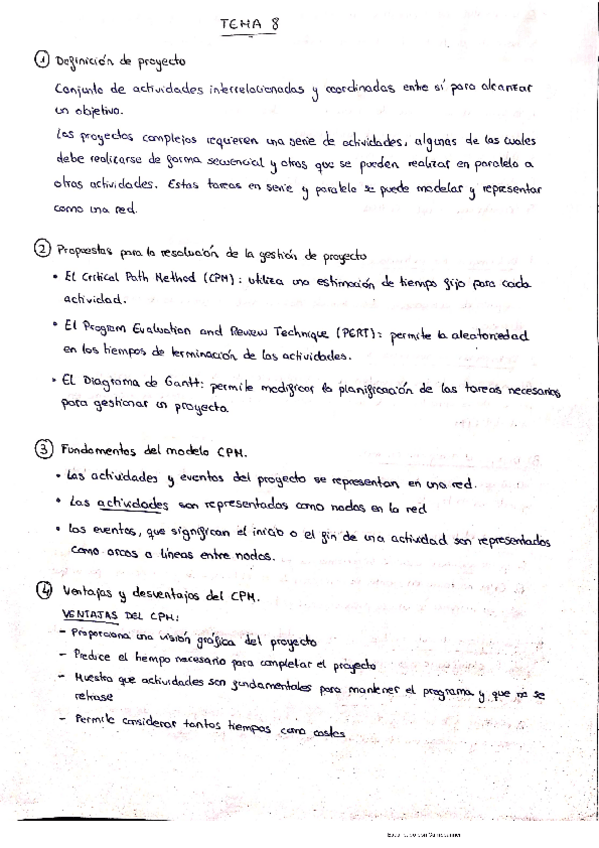 TEMA 8
① Definición de proyecto
Conjunto de actividades interrelacionadas y coordinadas entre sí para alcanzar
un objetivo.
Los proyectos complejos requieren una serie de actividades, algunas de las cuales
debe realizarse de forma secuencial y otras que se pueden realizar en paralelo a
otras actividades. Estas tareas en serie y paralelo se puede modelar y representar
como una red.
② Propuestas para la resolución de la gestión de proyecto
• El Critical Path Method (CPM): utiliza una estimación de tiempo fijo para cada
actividad.
• El Program Evaluation and Review Technique (PERT): permite la aleatoriedad
en los tiempos de terminación de las actividades.
• El Diagrama de Gantt: permite modificar la planificación de las tareas necesarias
para gestionar un proyecto
③ Fundamentos del modelo CPM.
• Las actividades y eventos del proyecto se representan en una red.
• Las actividades son representadas como nodos en la red
• Los eventos, que significan el inicio o el fin de una actividad son representados
como arcos o líneas entre nodos.
④ Ventajas y desventajas del CPM.
VENTAJAS DEL CPM:
- Proporciona una visión gráfica del proyecto
- Predice el tiempo necesario para completar el proyecto
- Muestra que actividades son fundamentales para mantener el programa y que no se
retrase
- Permite considerar tantos tiempos como costes